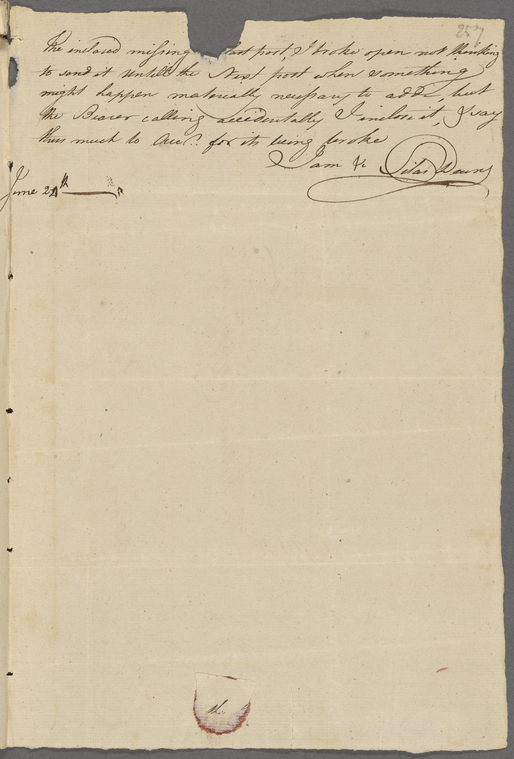 257
The inclosed missing last post, I broke open not thinking
to send it untill the Next post when something
might happen materially necessary to add, but
the Bearer calling accidentally I inclose it, & say
thus much to Acc.t for its being broke
I am &c Silas Deane
June 2
th